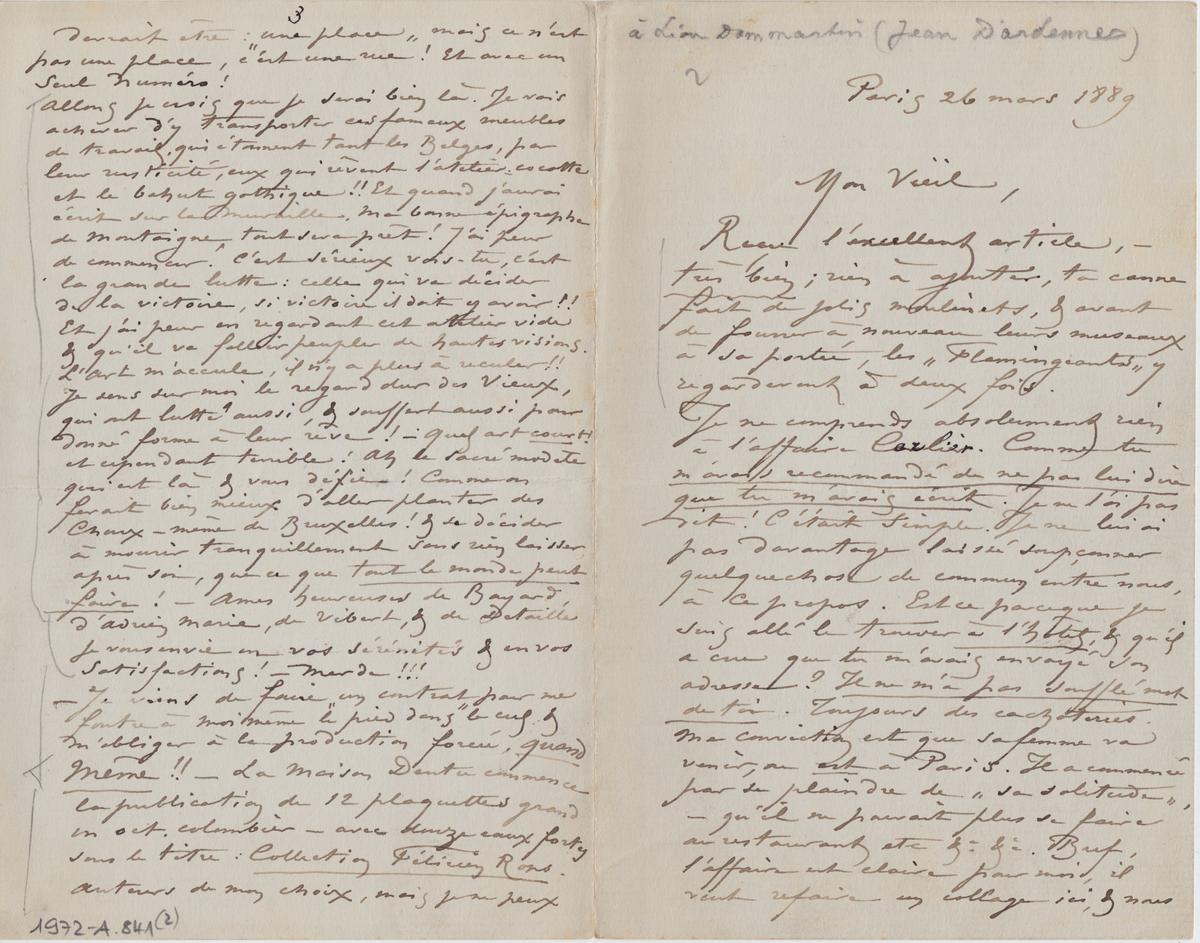 3
devrait être : une place „ mais ce n'est
pas une place, c'est une rue ! Et avec un
seul numéro !
Allons je crois que je serai bien là. Je vais
achever d'y transporter ces fameux meubles
de travail, qui étonnent tant les Belges, par
leur rusticité, eux qui rêvent l'atelier-cocotte
et le bahut gothique !! Et quand j'aurai
écrit sur la muraille, ma bonne épigraphe
de Montaigne, tout sera prêt ! J'ai peur
de commencer ! C'est sérieux vois-tu, c'est
la grande lutte : celle qui va décider
de la victoire, si victoire il doit y avoir !!
Et j'ai peur en regardant cet atelier vide
& qu'il va falloir peupler de hautes visions.
L'Art m'accule, il n'y a plus à reculer !!
Je sens sur moi le regard dur des Vieux,
qui ont lutté aussi, & souffert aussi pour
donné forme à leur rêve ! – Quel art court
et cependant terrible ! Ah le sacré modèle
qui est là & vous défie ! Comme on
ferait bien mieux d'aller planter des
Choux – même de Bruxelles ! & se décider
à mourir tranquillement sans rien laisser
après soi, que ce que tout le monde peut
faire ! – Ames heureuses de Bayard
d'Adrien Marie, de Vibert, & de Detaille
je vous envie en vos sérénités & en vos
satisfactions ! – Merde !!!
– Je viens de faire un contrat pour me
foutre à moi même "le pied dans" le cul &
m'obliger à la production forcée, quand
même !! – La Maison Dentu commence
la publication de 12 plaquettes grand
in oct. colombier – avec douze eaux fortes
sous le titre : Collection Félicien Rops.
auteurs de mon choix, mais je ne peux
1972-A.841(2)
à Léon Dommartin (Jean D'Ardennes)
2
Paris 26 mars 1889
Mon Vieil,
Reçu l'excellent article, –
très bien ; rien à ajouter, ta canne
fait de jolis moulinets, & avant
de fourrer à nouveau leurs museaux
à sa portée, les „ Flamingeants „ y
regarderont à deux fois.
Je ne comprends absolument rien
à l'affaire Carlier. Comme tu
m'avais recommandé de ne pas lui dire
que tu m'avais écrit. Je ne l'ai pas
dit ! C'était simple. Je ne lui ai
pas davantage laissé soupçonner
quelquechose de commun entre nous,
à ce propos. Est ce parceque je
suis allé le trouver à l'hôtel, & qu'il
a cru que tu m'avais envoyé son
adresse ? Il ne m'a pas soufflé mot
de toi. Toujours des cachoteries.
Ma conviction est que sa femme va
venir, ou est à Paris. Il a commencé
par se plaindre de „ sa solitude „,
– qu'il ne pouvait plus se faire
au restaurant etc &c &c. Bref,
l'affaire est claire pour moi, il
veut refaire un collage ici, & nous